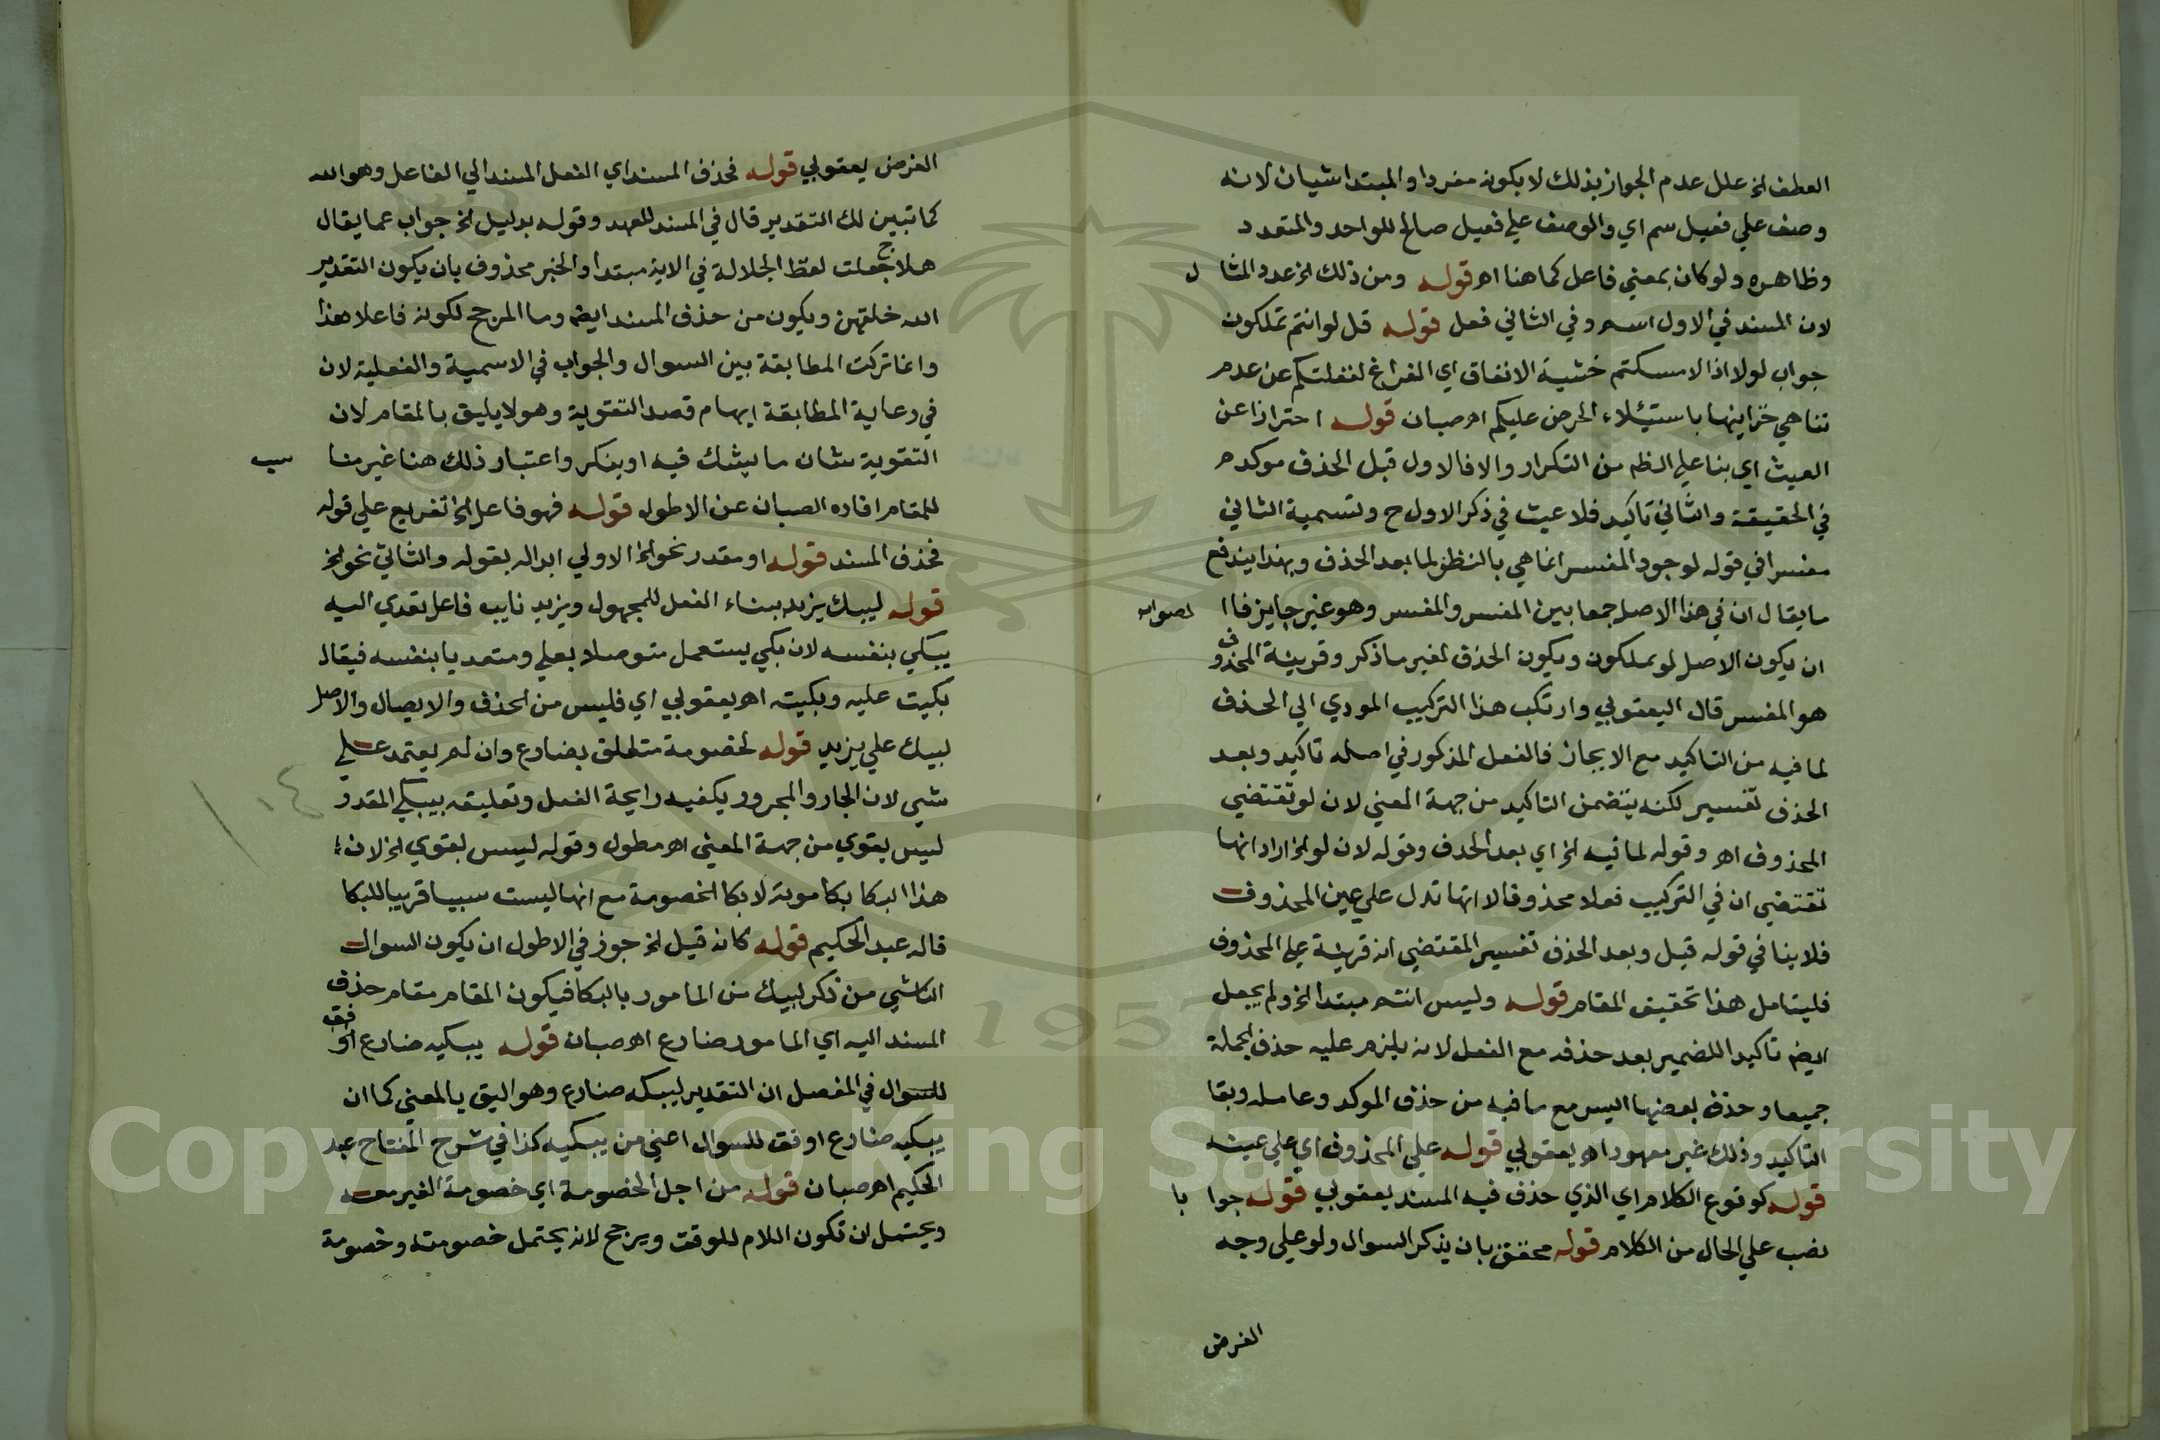 العطف الخ علل عدم الجواز بذلك لا بكونه مفردا والمبتدا شيان لانه
وصف علي فعيل سم اي والوصف علي فعيل صالح للواحد والمتعدد
وظاهره ولو كان بمعني فاعل كما هنا اه قوله ومن ذلك الخ عدد المثا ل
لان المسند في الاول اسم وفي الثاني فعل قوله قل لو انتم تملكون
جواب لو لا اذا لامسكتم خشية الانفاق اي الفراغ لغفلتكم عن عدم
تناهي خزاينها باستيلاء الحرص عليكم اه صبان قوله احترازا عن
العبث اي بنا علي الظم من التكرار والا فالاول قبل الحذف موكد
في الحقيقة والثاني تاكيد فلا عبث في ذكر الاول ح وتسمية الثاني
مفسرا في قوله لوجود المفسر انما هي بالنظر لما بعد الحذف وبهذا يندفع
ما يقال ان في هذا الاصل جمعا بين المفسر والمفسر وهو غير جايز فا ا لصواب
ان يكون الاصل لو تملكون ويكون الحذف لغير ما ذكر وقرينة المحذوف
هو المفسر قال اليعقوبي وارتكب هذا التركيب المودي الي الحذف
لما فيه من التاكيد مع الايجاز فالفعل المذكور في اصله تاكيد وبعد
الحذف تفسير لكنه يتضمن التاكيد من جهة المعني لان لو تقتضي
المحذوف اه وقوله لما فيه الخ اي بعد الحذف وقوله لان لو الخ اراد انها
تقتضي ان في التركيب فعلا محذوفا لا انها تدل علي عين المحذوف
فلا ينافي قوله قبل وبعد الحذف تفسير المقتضي انه قرينة علي المحذوف
فليتامل هذا تحقيق المقام قوله وليس انتم مبتدا الخ ولم يجعل
ايضم تاكيدا للضمير بعد حذفه مع الفعل لانه يلزم عليه حذف الجملة
جميعا وحذف بعضها اليسر مع ما فيه من حذف الموكد وعامله وبقا
التاكيد وذلك غير معهود اه يعقوبي قوله علي المحذوف اي علي عينه
قوله كوقوع الكلام اي الذي حذف فيه المسند يعقوبي قوله جوا با
نصب علي الحال من الكلام قوله محقق بان يذكر السوال ولو علي وجه
الفرض
الفرض يعقوبي قوله فحذف المسند اي الفعل المسند الي الفاعل وهو الله
كما تبين لك التقدير قال في المسند للعهد وقوله بدليل الخ جواب عما يقال
هلا جعلت لفظ الجلالة في الاية مبتدا والخبر محذوف بان يكون التقدير
الله خلقهن ويكون من حذف المسند ايضم وما المرجح لكونه فاعلا هذا
وانما تركت المطابقة بين السوال والجواب في الاسمية والفعلية لان
في رعاية المطابقة ايهام قصد التقوية وهو لا يليق بالمقام لان
التقوية شان ما يشك فيه او ينكر واعتبار ذلك هنا غير منا سب
للمقام افاده الصبان عن الاطول قوله فهو فاعل الخ تفريع علي قوله
فحذف المسند قوله او مقدر نحو الخ الاولي ابداله بقوله والثاني نحو الخ
قوله ليبك يزيد ببناء الفعل للمجهول ويزيد نايب فاعل تعدي اليه
يبكي بنفسه لان بكي يستعمل متوصلا بعلي ومتعديا بنفسه فيقال
بكيت عليه وبكيته اه يعقوبي اي فليس من الحذف والايصال والاصل
ليبك علي يزيد قوله لخصومة متعلق بضارع وان لم يعتمد علي
شي لان الجار والمجرور يكفيه رايحة الفعل وتعليقه بيبكي المقدر
ليس بقوي من جهة المعني اه مطول وقوله ليس بقوي الخ لان
هذا البكا بكا موته لا بكا الخصومة مع انها ليست سببا قريبا للبكا
قاله عبد الحكيم قوله كانه قيل الخ جوز في الاطول ان يكون السوال
الناشي من ذكر ليبك من المامور بالبكا فيكون المقام مقام حذف
المسند اليه اي المامور ضارع اه صبان قوله يبكيه ضارع اوفق
للسوال في المفصل ان التقدير ليبكه ضارع وهو اليق بالمعني كما ان
يبكيه ضارع اوفق للسوال اعني من يبكيه كذا في شرح المفتاح عبد
الحكيم اه صبان قوله من اجل الخصومة اي خصومة الغير معه
ويحتمل ان تكون اللام للوقت ويرجح لانه يحتمل خصومته وخصومة
Copyright © King Saud University
1957